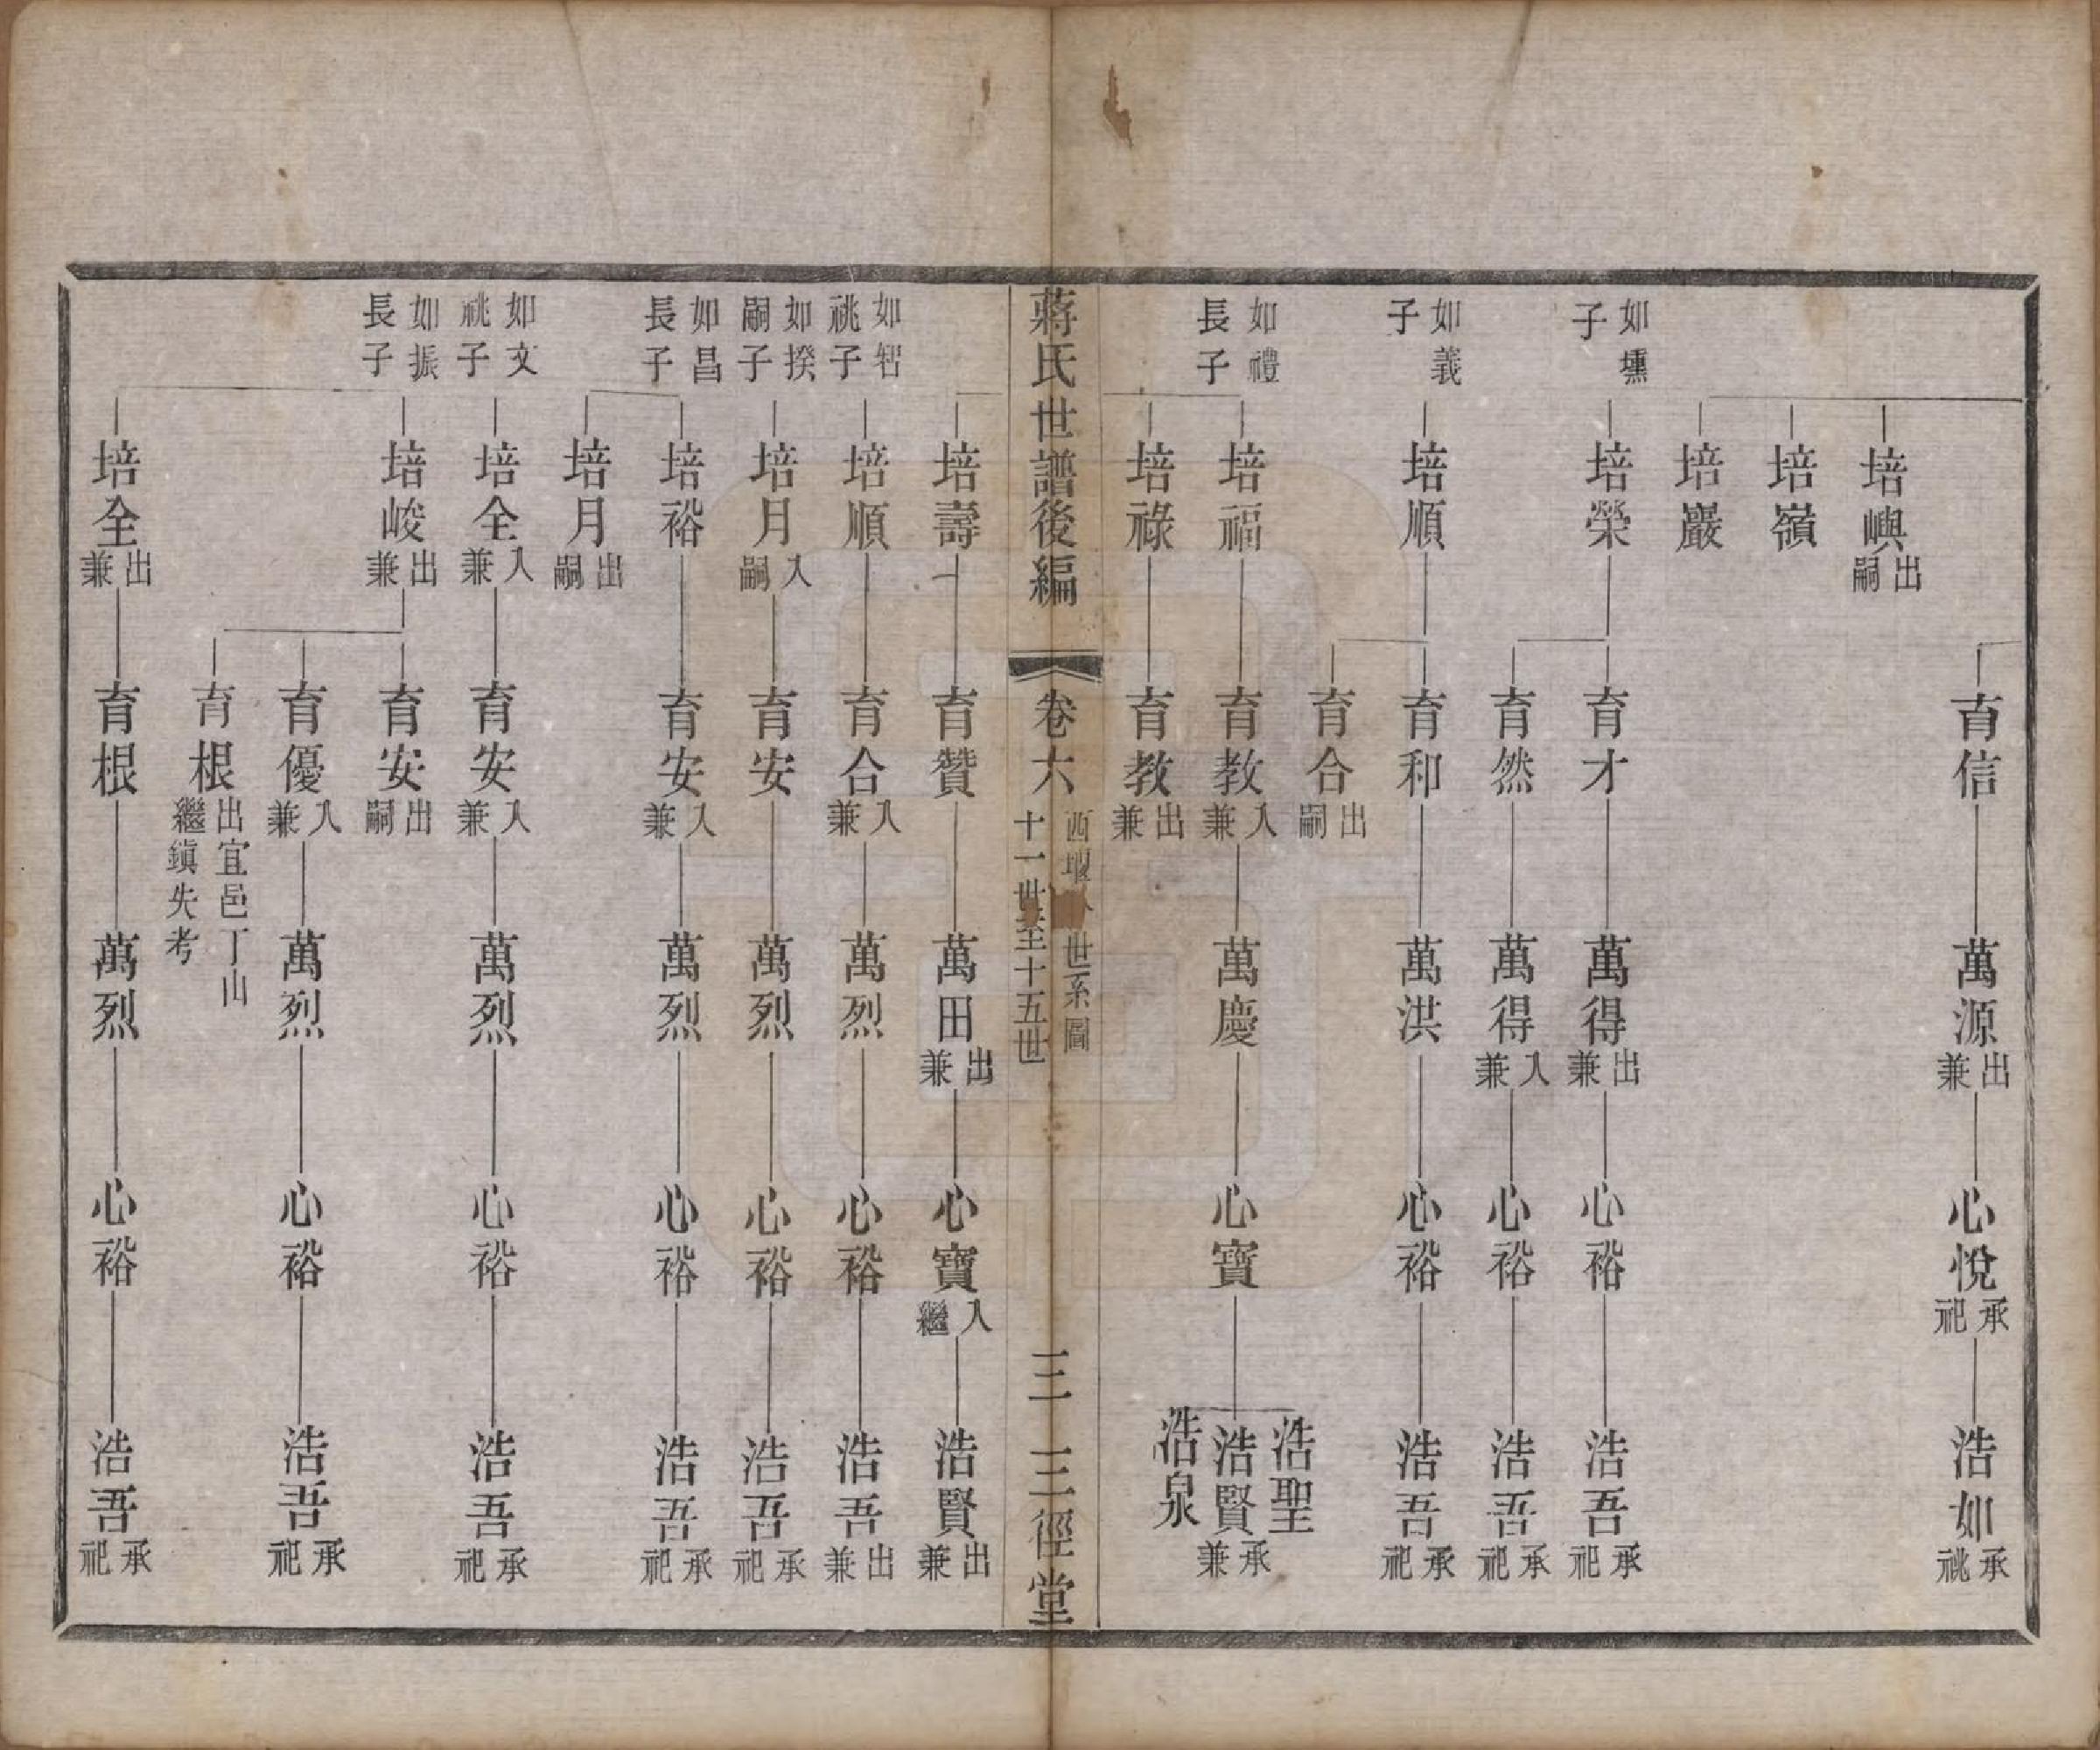 育信 萬源出兼 心悅承祀 浩如承祧
培嶼出嗣
培嶺
培巖
如壎子 培榮 育才 萬得出兼 心裕 浩吾承祀
育然 萬得入兼 心裕 浩吾承祀
如義子 培順 育和 萬洪 心裕 浩吾承祀
育合出嗣
浩聖
如禮長子 培福 育教入兼 萬慶 心寶 浩賢承兼
浩泉
培祿 育教出兼
蔣氏世譜後編 卷六 西堰 世系圖 十一世至十五世 三 三徑堂
培壽 育贊 萬田出兼 心寶入繼 浩賢出兼
如智祧子 培順 育合入兼 萬烈 心裕 浩吾出兼
如揆嗣子 培月入嗣 育安 萬烈 心裕 浩吾承祀
如昌長子 培裕 育安入兼 萬烈 心裕 浩吾承祀
培月出嗣
如文祧子 培全入兼 育安入兼 萬烈 心裕 浩吾承祀
如振長子 培峻出兼 育安出嗣
育優入兼 萬烈 心裕 浩吾承祀
育根出宜邑丁山繼鎮失考
培全出兼 育根 萬烈 心裕 浩吾承祀